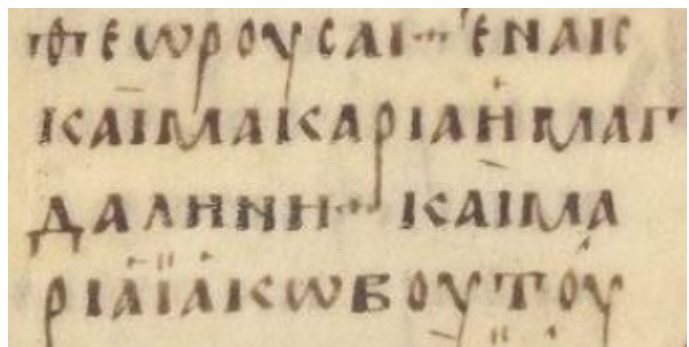 ΘΕΩΡΟΥCΑΙ·ἘΝΑΙC
ΚΑΙΜΑΚΑΡΙΑΗΜΑΓ
ΔΑΛΗΝΗ· ΚΑΙΜΑ
ΡΙΑΪΑΚΩΒΟΥΤΟΥ